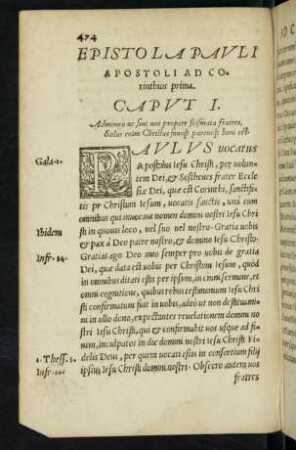 474
EPISTOLA PAVLI
APOSTOLI AD CO-
rinthios prima.
CAPVT I.
Admonco ne sint inter propter scismata fratres,
Solus enim Christus sumissi parentis honi est.
PAVLVS uocatus
Apostolus Iesu Christi, per uolun
tatem Dei, & Sosthenes frater Eccle
siæ Dei, quæ est Corinthi, sanctifica
tis per Christum Iesum, uocatis sanctis, unà cum
omnibus qui inuocant nomen domini nostri Iesu Chri
sti in quouis loco, uel suo uel nostro. Gratia uobis
& pax à Deo patre nostro, & domino Iesu Christo.
Gratias ago Deo meo semper pro uobis de gratia
Dei, quæ data est uobis per Christum Iesum, quòd
in omnibus ditati estis per ipsum, in omni sermone, et
omni cognitione, quibus rebus testimonium Iesu Chri
sti confirmatum fuit in uobis, adeò ut non destituami
ni in ullo dono, expectantes reuelationem domini no
stri Iesu Christi, qui & confirmabit uos usque ad fi
nem, inculpatos in die domini nostri Iesu Christi Fi
delis Deus, per quem uocati estis in consortium filij
ipsius Iesu Christi domini nostri. Obsecro autem uos
fratres
Gala.1.
Ibidem
Infr.
1. Thess. 5.
Infr.